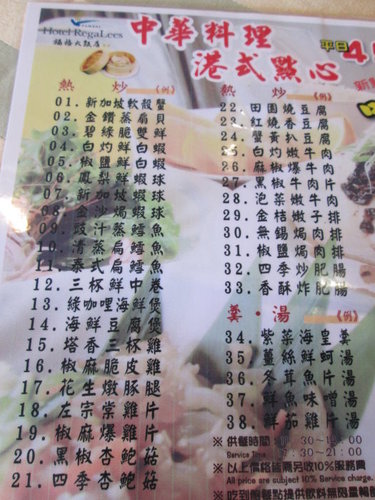 Hotel RegaLees
福格大飯店
中華料理
港式點心
平日4
熱 炒 (例)
01.新加坡軟殼蟹
02.金鑽蒸扇貝
03.碧綠脆雙鮮
04.白灼鮮白蝦
05.椒鹽鮮白蝦
06.鳳梨鮮蝦球
07.新加坡蝦球
08.金沙焗蝦球
09.豉汁蒸鱈魚
10.清蒸扁鱈魚
11.泰式扁鱈魚
12.三杯鮮中卷
13.綠咖哩海鮮煲
14.海鮮豆腐煲
15.塔香三杯雞
16.椒麻脆皮雞
17.花生燉豚腿
18.左宗棠雞片
19.椒麻爆雞片
20.黑椒杏鮑菇
21.四季杏鮑菇
熱 炒 (例)
22.田園燒豆腐
23.紅燒香豆腐
24.蟹黃扒豆腐
25.白灼嫩牛肉
26.麻椒爆牛肉
27.黑椒牛肉片
28.泡菜嫩牛肉
29.金桔嫩子排
30.無錫焗肉排
31.椒鹽焗肉排
32.四季炒肥腸
33.香酥炸肥腸
羹·湯 (例)
34.紫菜海皇羹
35.薑絲鮮蚵湯
36.冬茸魚片湯
37.鮮魚味噌湯
38.鮮茄雞片湯
※供餐時間:
:30~14:00
Service Time
7:30~21:00
※以上價格皆需另收10%服務費
All price are subject 10% Service charge.